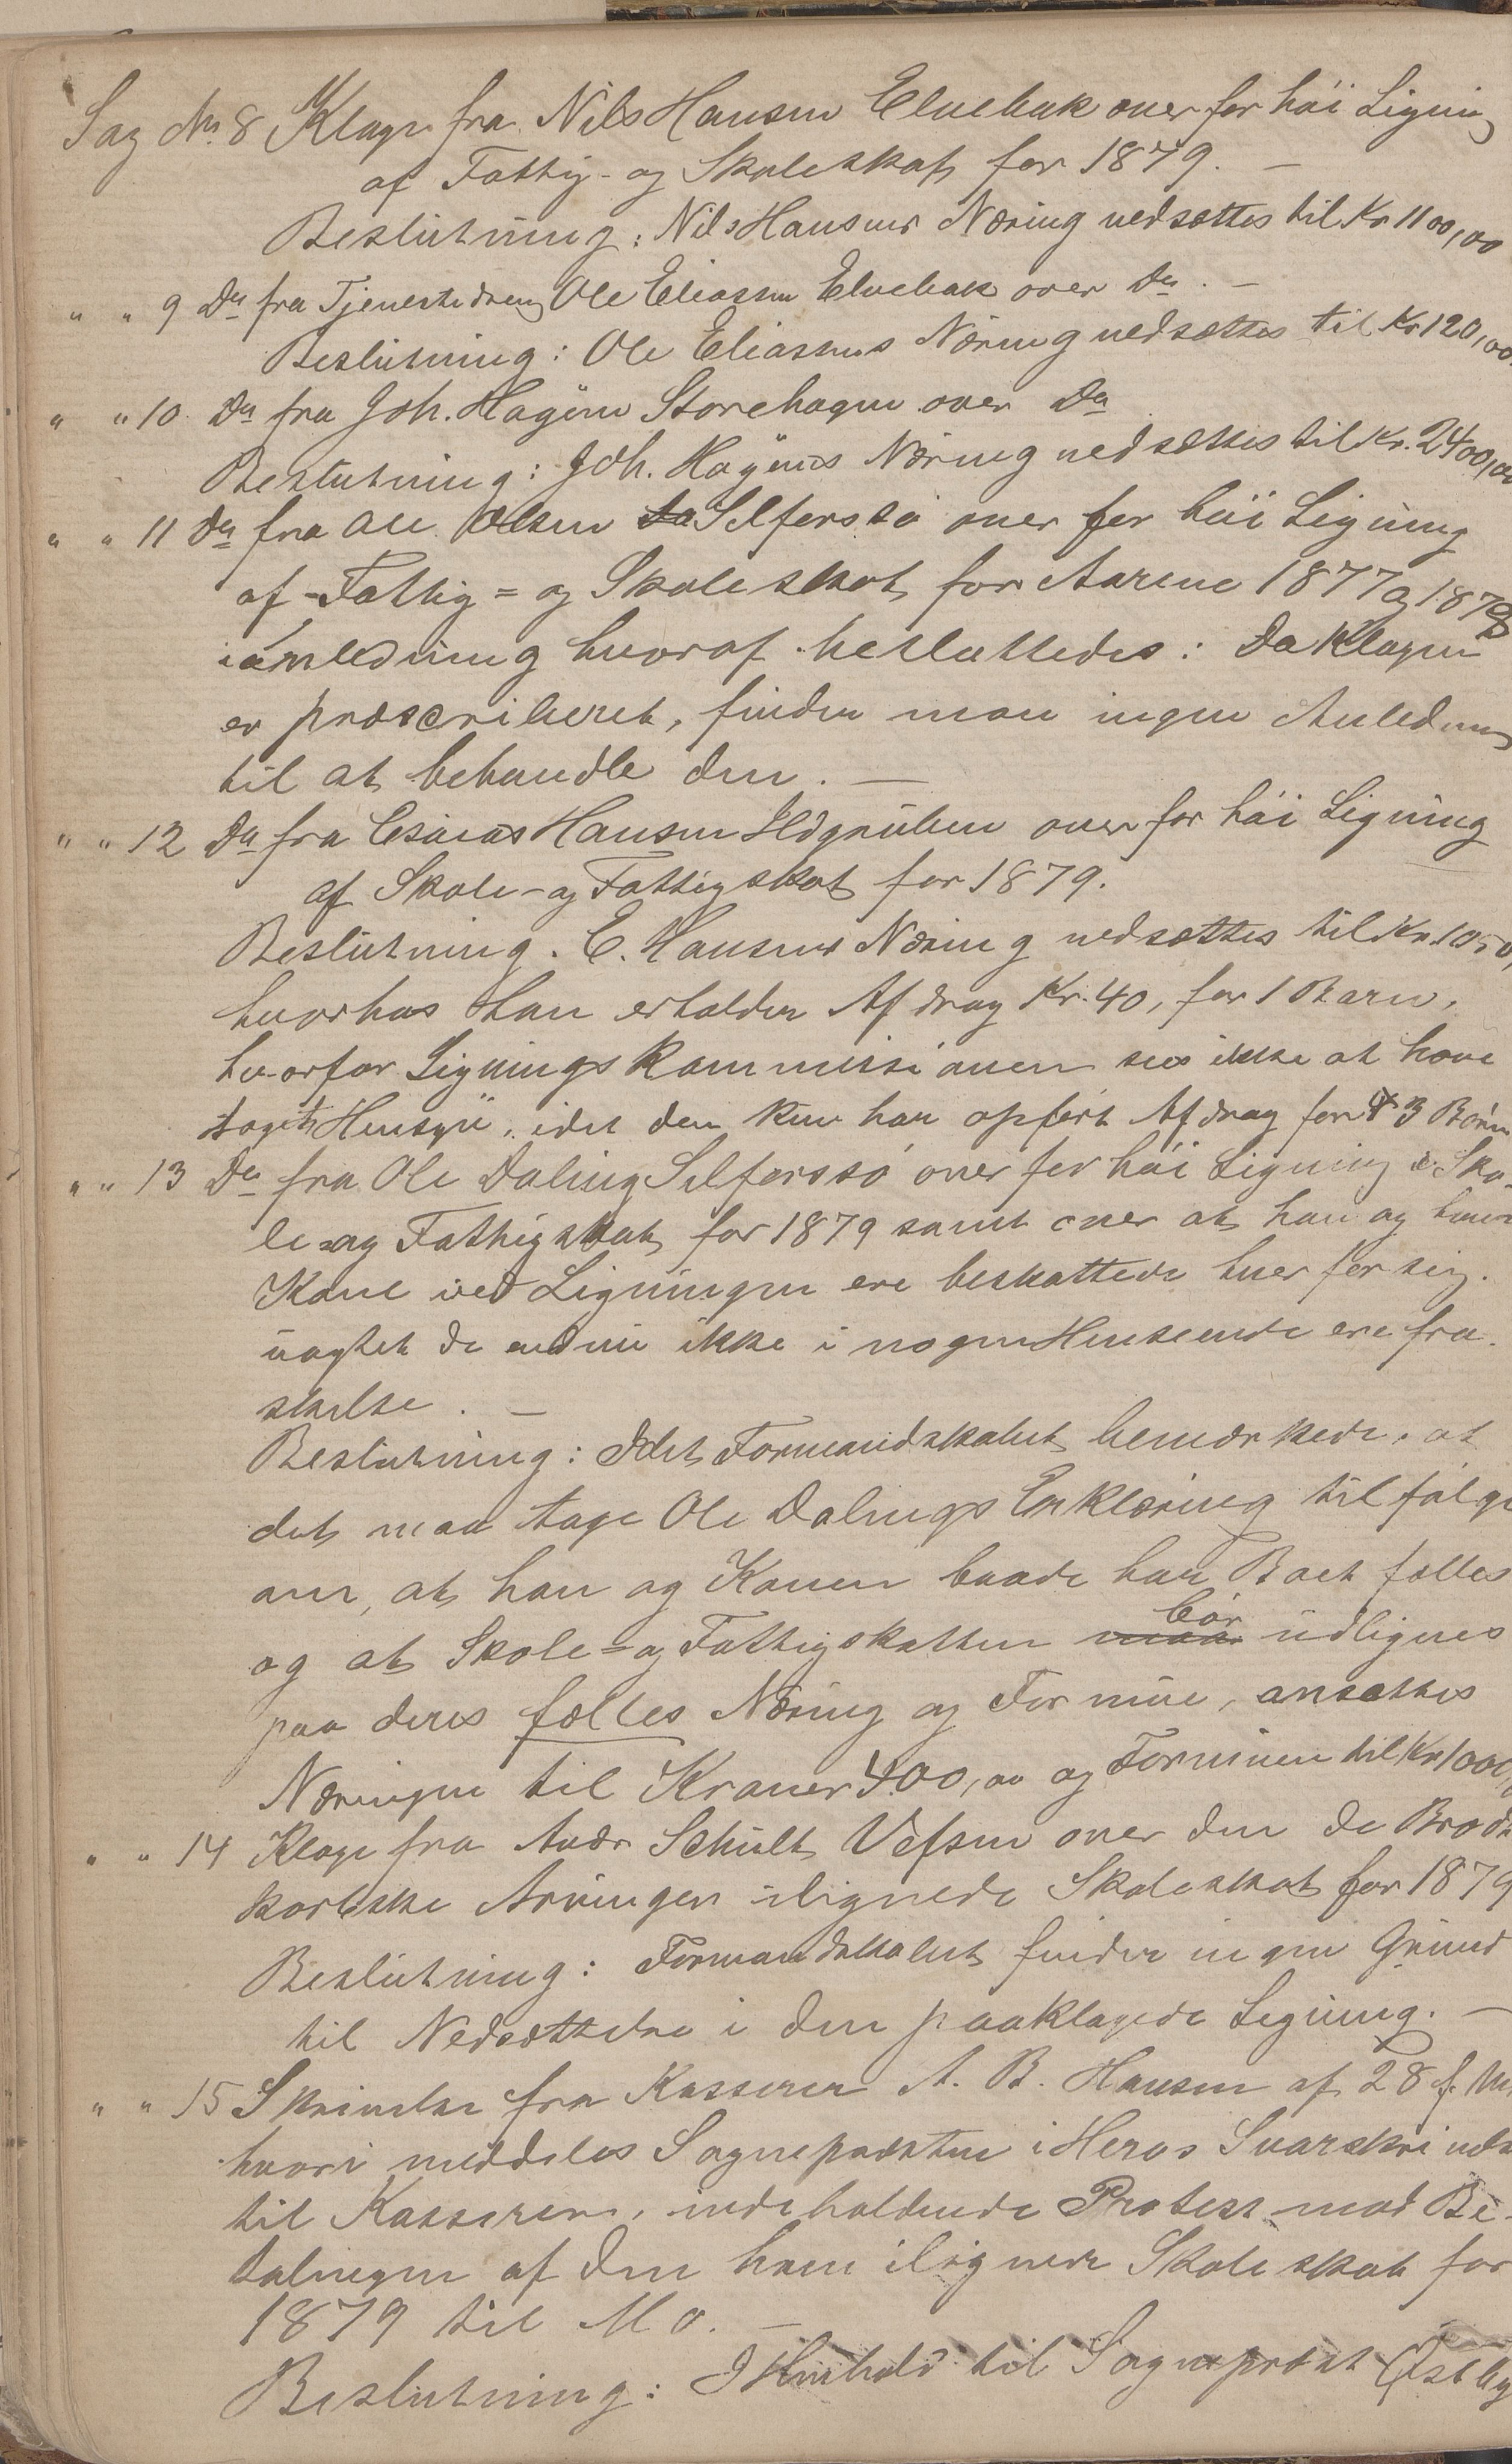 Sag No 8 Klage fra Nils Hansen Elvebak over for høi Ligning
af Fattig- og Skoleskat for 1879. —
Beslutning: Nils Hansens Næring nedsættes til Kr 1100,00
" " 9 Do fra Tjenestedreng Ole Eliassen Elvebak over Do. —
Beslutning: Ole Eliassens Næring nedsættes til Kr 120,00.
" " 10 Do fra Joh. Hagen Storehagen over Do
Beslutning: Joh. Hagens Næring nedsættes til Kr. 2400,00
" " 11 Do fra Ole Olsen Selforssø over for høi Ligning
af Fattig= og Skoleskat for Aarene 1877 og 1878
i anledning hvoraf besluttedes: Da Klagen
er præscriberet, finder man ingen Anledning
til at behandle den. —
" " 12 Do fra Esaias Hansen Ildgruben over for høi Ligning
af Skole- og Fattigskat for 1879.
Beslutning. E. Hansens Næring nedsættes til Kr. 1050,
hvorhos han erholder Afdrag Kr. 40, for 1 Barn,
hvorfor Ligningskommissionen sees ikke at have
taget Hensyn, idet den kun har opført Afdrag for 3 Børn
" " 13 Do fra Ole Daling Selforssø over for høi Ligning i Sko-
le- og Fattigskat for 1879 samt over at han og hans
Kone ved Ligningen ere beskattede hver for sig.
uagtet de endnu ikke i nogen Henseende ere fra-
skilte. —
Beslutning: Idet Formandskabet bemærkede, at
det maa tage Ole Dalings Erklæring tilfølge
om, at han og Konen baade har Boet fælles
og at Skole- og Fattigskatten maa bør udlignes
paa deres fælles Næring og Formue, ansættes
Næringen til Kroner 400,00 og Formuen til Kr 1000,
" " 14 Klage fra Andr Schult Vefsen over den de Brod-
korbske Arvinger ilignede Skoleskat for 1879
Beslutning: Formandskabet finder ingen Grund
til Nedsættelse i den paaklagede Ligning. —
" " 15 Skrivelse fra Kasserer A. B. Hansen af 28 f. M.
hvori meddeles Sognepræsten i Herøs Svarskrivelse
til Kassereren, indeholdende Protest mod Be-
talingen af den ham ilignede Skoleskat for
1879 til Mo. —
Beslutning: I Henhold til Sogneprest Østby